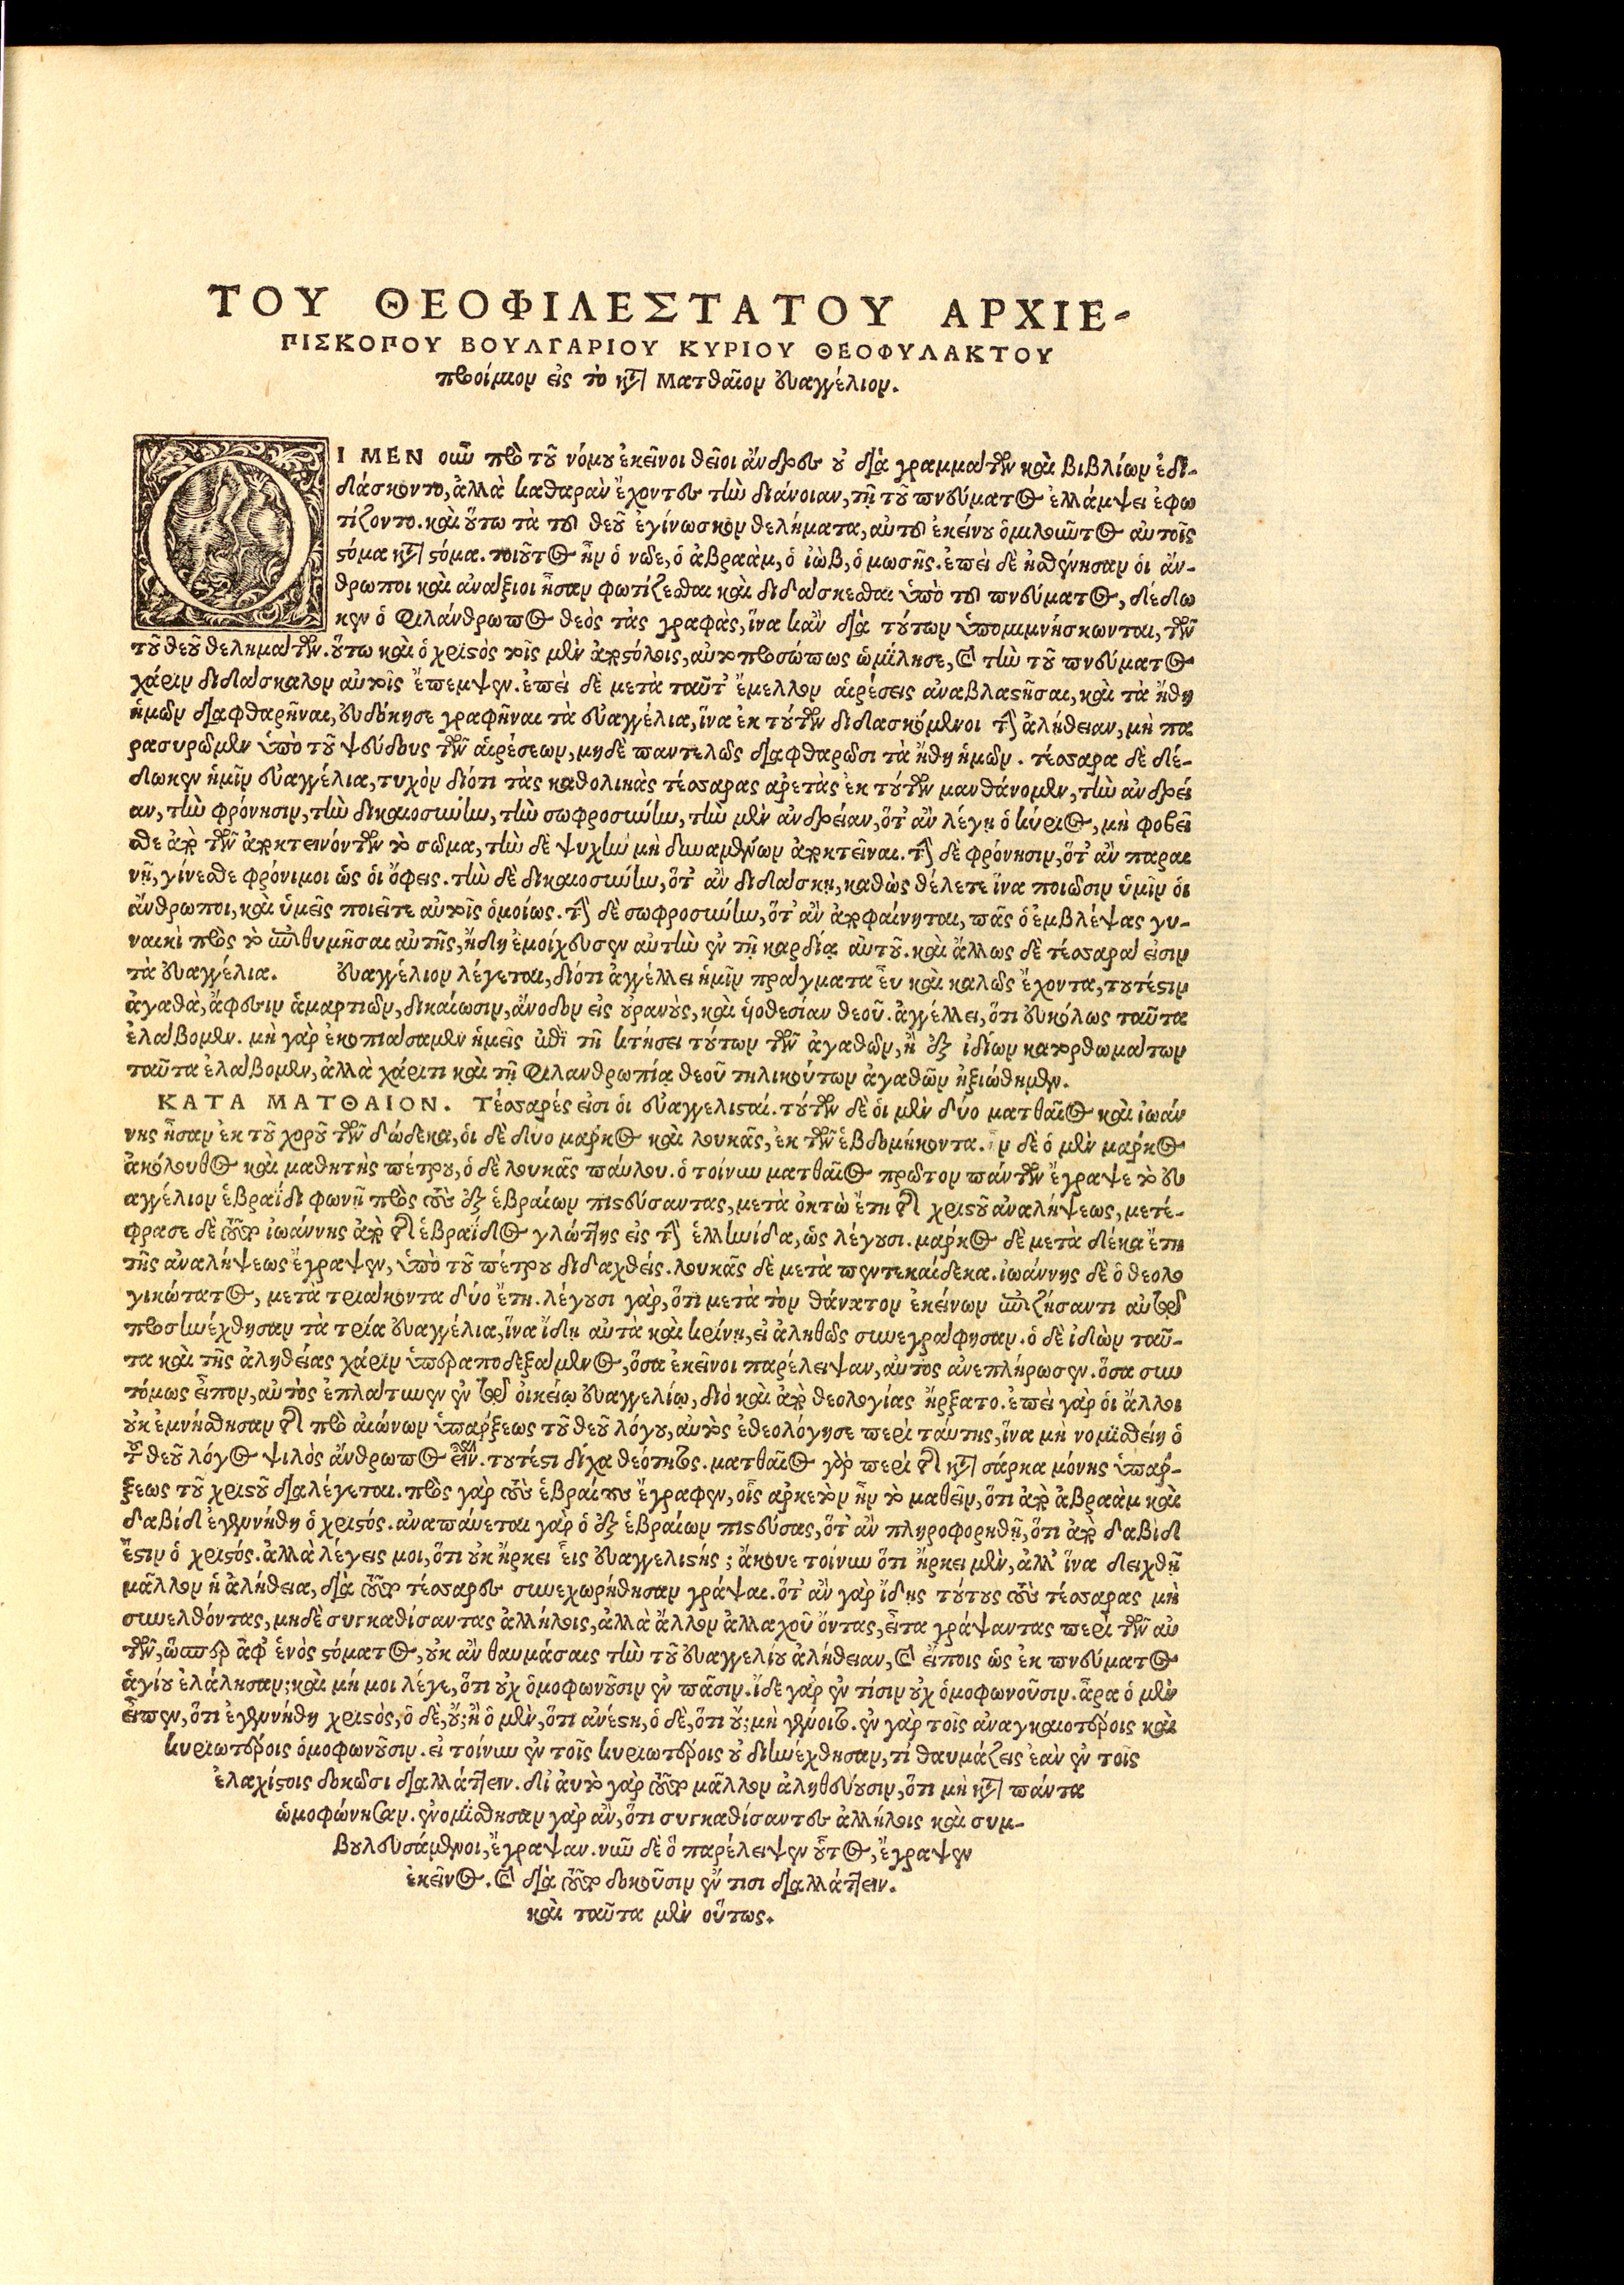 ΤΟΥ ΘΕΟΦΙΛΕΣΤΑΤΟΥ ΑΡΧΙΕ-
ΠΙΣΚΟΠΟΥ ΒΟΥΛΓΑΡΙΟΥ ΚΥΡΙΟΥ ΘΕΟΦΥΛΑΚΤΟΥ
προίμιον εἰς τὸ κτ̀ Ματθαῖον εὐαγγέλιον.
ΟΙ ΜΕΝ οὖν πρὸ τοῦ νόμου ἐκεῖνοι θεῖοι ἄνδρες οὐ διὰ γραμμάτων καὶ βιβλίων ἐδι-
δάσκοντο, ἀλλὰ καθαρὰν ἔχοντες τὴν διάνοιαν, τῇ τοῦ πνεύματος ἐλλάμψει ἐφω
τίζοντο. καὶ οὕτω τὰ τοῦ θεοῦ ἐγίνωσκον θελήματα, αὐτοῦ ἐκείνου ὁμιλοῦντος αὐτοῖς
στόμα κτ̀ στόμα. τοιοῦτος ἦν ὁ νῶε, ὁ ἀβραὰμ, ὁ ἰὼβ, ὁ μωσῆς. ἐπεὶ δὲ ἠσθένησαν οἱ ἄν-
θρωποι καὶ ἀνάξιοι ἦσαν φωτίζεσθαι καὶ διδάσκεσθαι ὑπὸ τοῦ πνεύματος, δέδω
κεν ὁ φιλάνθρωπος θεὸς τὰς γραφὰς, ἵνα κἂν διὰ τούτων ὑπομιμνήσκωνται, τῶν
τοῦ θεοῦ θελημάτων. οὕτω καὶ ὁ χριστὸς τοῖς μὲν ἀποστόλοις, αὐτοπροσώπως ὡμίλησε, καὶ τὴν τοῦ πνεύματος
χάριν διδάσκαλον αὐτοῖς ἔπεμψεν. ἐπεὶ δὲ μετὰ ταῦτ' ἔμελλον αἱρέσεις ἀναβλαστῆσαι, καὶ τὰ ἤθη
ἡμῶν διαφθαρῆναι, εὐδόκησε γραφῆναι τὰ εὐαγγέλια, ἵνα ἐκ τούτων διδασκόμενοι τὴν ἀλήθειαν, μὴ πα
ρασυρῶμεν ὑπὸ τοῦ ψεύδους τῶν αἱρέσεων, μηδὲ παντελῶς διαφθαρῶσι τὰ ἤθη ἡμῶν. τέσσαρα δὲ δέ-
δωκεν ἡμῖν εὐαγγέλια, τυχὸν διότι τὰς καθολικὰς τέσσαρας ἀρετὰς ἐκ τούτων μανθάνομεν, τὴν ἀνδρεί
αν, τὴν φρόνησιν, τὴν δικαιοσύνην, τὴν σωφροσύνην, τὴν μὲν ἀνδρείαν, ὅτ' ἂν λέγῃ ὁ κύριος, μὴ φοβεῖ
σθε ἀπὸ τῶν ἀποκτεινόντων τὸ σῶμα, τὴν δὲ ψυχὴν μὴ δυναμένων ἀποκτεῖναι. τὴν δὲ φρόνησιν, ὅτ' ἂν παραι
νῇ, γίνεσθε φρόνιμοι ὡς οἱ ὄφεις. τὴν δὲ δικαιοσύνην, ὅτ' ἂν διδάσκῃ, καθὼς θέλετε ἵνα ποιῶσιν ὑμῖν οἱ
ἄνθρωποι, καὶ ὑμεῖς ποιεῖτε αὐτοῖς ὁμοίως. τὴν δὲ σωφροσύνην, ὅτ' ἂν ἀποφαίνηται, πᾶς ὁ ἐμβλέψας γυ-
ναικὶ πρὸς τὸ ἐπιθυμῆσαι αὐτῆς, ἤδη ἐμοίχευσεν αὐτὴν ἐν τῇ καρδίᾳ αὐτοῦ. καὶ ἄλλως δὲ τέσσαρα εἰσιν
τὰ εὐαγγέλια. εὐαγγέλιον λέγεται, διότι ἀγγέλλει ἡμῖν πράγματα εὖ καὶ καλῶς ἔχοντα, τουτέστιν
ἀγαθὰ, ἄφεσιν ἁμαρτιῶν, δικαίωσιν, ἄνοδον εἰς οὐρανοὺς, καὶ υἱοθεσίαν θεοῦ. ἀγγέλλει, ὅτι εὐκόλως ταῦτα
ἐλάβομεν. μὴ γὰρ ἐκοπιάσαμεν ἡμεῖς ἐπὶ τῇ κτήσει τούτων τῶν ἀγαθῶν, ἢ ἐξ ἰδίων κατορθωμάτων
ταῦτα ἐλάβομεν, ἀλλὰ χάριτι καὶ τῇ φιλανθρωπίᾳ θεοῦ τηλικούτων ἀγαθῶν ἠξιώθημεν.
ΚΑΤΑ ΜΑΤΘΑΙΟΝ. Τέσσαρές εἰσι οἱ εὐαγγελισταί. τούτων δὲ οἱ μὲν δύο ματθαῖος καὶ ἰωάν
νης ἦσαν ἐκ τοῦ χοροῦ τῶν δώδεκα, οἱ δὲ δύο μάρκος καὶ λουκᾶς, ἐκ τῶν ἑβδομήκοντα. ἦν δὲ ὁ μὲν μάρκος
ἀκόλουθος καὶ μαθητὴς πέτρου, ὁ δὲ λουκᾶς παύλου. ὁ τοίνυν ματθαῖος πρῶτον πάντων ἔγραψε τὸ εὐ
αγγέλιον ἑβραΐδι φωνῇ πρὸς τοὺς ἐξ ἑβραίων πιστεύσαντας, μετὰ ὀκτὼ ἔτη τῆς χριστοῦ ἀναλήψεως, μετέ-
φρασε δὲ τοῦτο ἰωάννης ἀπὸ τῆς ἑβραΐδος γλώττης εἰς τὴν ἑλληνίδα, ὡς λέγουσι. μάρκος δὲ μετὰ δέκα ἔτη
τῆς ἀναλήψεως ἔγραψεν, ὑπὸ τοῦ πέτρου διδαχθείς. λουκᾶς δὲ μετὰ πεντεκαίδεκα. ἰωάννης δὲ ὁ θεολο
γικώτατος, μετὰ τριάκοντα δύο ἔτη. λέγουσι γὰρ, ὅτι μετὰ τὸν θάνατον ἐκείνων ἐπιζήσαντι αὐτῷ
προσηνέχθησαν τὰ τρία εὐαγγέλια, ἵνα ἴδῃ αὐτὰ καὶ κρίνῃ, εἰ ἀληθῶς συνεγράφησαν. ὁ δὲ ἰδὼν ταῦ-
τα καὶ τῆς ἀληθείας χάριν ὑπεραποδεξάμενος, ὅσα ἐκεῖνοι παρέλειψαν, αὐτὸς ἀνεπλήρωσεν. ὅσα συν
τόμως εἶπον, αὐτὸς ἐπλάτυνεν ἐν τῷ οἰκείῳ εὐαγγελίῳ, διὸ καὶ ἀπὸ θεολογίας ἤρξατο. ἐπεὶ γὰρ οἱ ἄλλοι
οὐκ ἐμνήσθησαν τῆς πρὸ αἰώνων ὑπάρξεως τοῦ θεοῦ λόγου, αὐτὸς ἐθεολόγησε περὶ ταύτης, ἵνα μὴ νομισθείη ὁ
τοῦ θεοῦ λόγος ψιλὸς ἄνθρωπος εἶναι. τουτέστι δίχα θεότητος. ματθαῖος γὰρ περὶ τῆς κτ̀ σάρκα μόνης ὑπάρ-
ξεως τοῦ χριστοῦ διαλέγεται. πρὸς γὰρ τοὺς ἑβραίους ἔγραφεν, οἷς ἀρκετὸν ἦν τὸ μαθεῖν, ὅτι ἀπὸ ἀβραὰμ καὶ
δαβὶδ ἐγεννήθη ὁ χριστός. ἀναπαύεται γὰρ ὁ ἐξ ἑβραίων πιστεύσας, ὅτ' ἂν πληροφορηθῇ, ὅτι ἀπὸ δαβὶδ
ἔστιν ὁ χριστός. ἀλλὰ λέγεις μοι, ὅτι οὐκ ἤρκει εἷς εὐαγγελιστής; ἄκουε τοίνυν ὅτι ἤρκει μὲν, ἀλλ' ἵνα δειχθῇ
μᾶλλον ἡ ἀλήθεια, διὰ τοῦτο τέσσαρες συνεχωρήθησαν γράψαι. ὅτ' ἂν γὰρ ἴδῃς τούτους τοὺς τέσσαρας μὴ
συνελθόντας, μηδὲ συγκαθίσαντας ἀλλήλοις, ἀλλὰ ἄλλον ἀλλαχοῦ ὄντας, εἶτα γράψαντας περὶ τῶν αὐ
τῶν, ὥσπερ ἀφ' ἑνὸς στόματος, οὐκ ἂν θαυμάσαις τὴν τοῦ εὐαγγελίου ἀλήθειαν, καὶ εἴποις ὡς ἐκ πνεύματος
ἁγίου ἐλάλησαν; καὶ μή μοι λέγε, ὅτι οὐχ ὁμοφωνοῦσιν ἐν πᾶσιν. ἴδε γὰρ ἐν τίσιν οὐχ ὁμοφωνοῦσιν. ἆρα ὁ μὲν
εἶπεν, ὅτι ἐγεννήθη χριστὸς, ὁ δὲ, οὔ; ἢ ὁ μὲν, ὅτι ἀνέστη, ὁ δὲ, ὅτι οὔ; μὴ γένοιτο. ἐν γὰρ τοῖς ἀναγκαιοτέροις καὶ
κυριωτέροις ὁμοφωνοῦσιν. εἰ τοίνυν ἐν τοῖς κυριωτέροις οὐ διηνέχθησαν, τί θαυμάζεις ἐὰν ἐν τοῖς
ἐλαχίστοις δοκῶσι διαλλάττειν. δι' αὐτὸ γὰρ τοῦτο μᾶλλον ἀληθεύουσιν, ὅτι μὴ κτ̀ πάντα
ὡμοφώνησαν. ἐνομίσθησαν γὰρ ἂν, ὅτι συγκαθίσαντες ἀλλήλοις καὶ συμ-
βουλευσάμενοι, ἔγραψαν. νῦν δὲ ὃ παρέλειψεν οὗτος, ἔγραψεν
ἐκεῖνος. καὶ διὰ τοῦτο δοκοῦσιν ἔν τισι διαλλάττειν.
καὶ ταῦτα μὲν οὕτως.